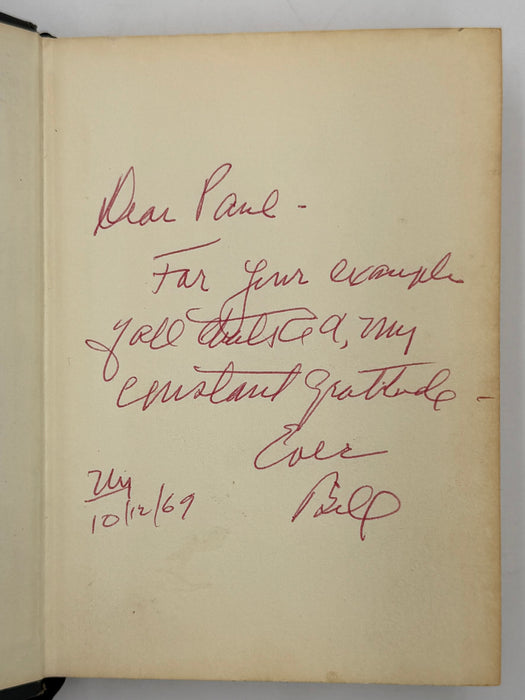 Dear Paul -
For your example
of all trusted, my
constant gratitude -
Ever
Bill
NY
10/12/69